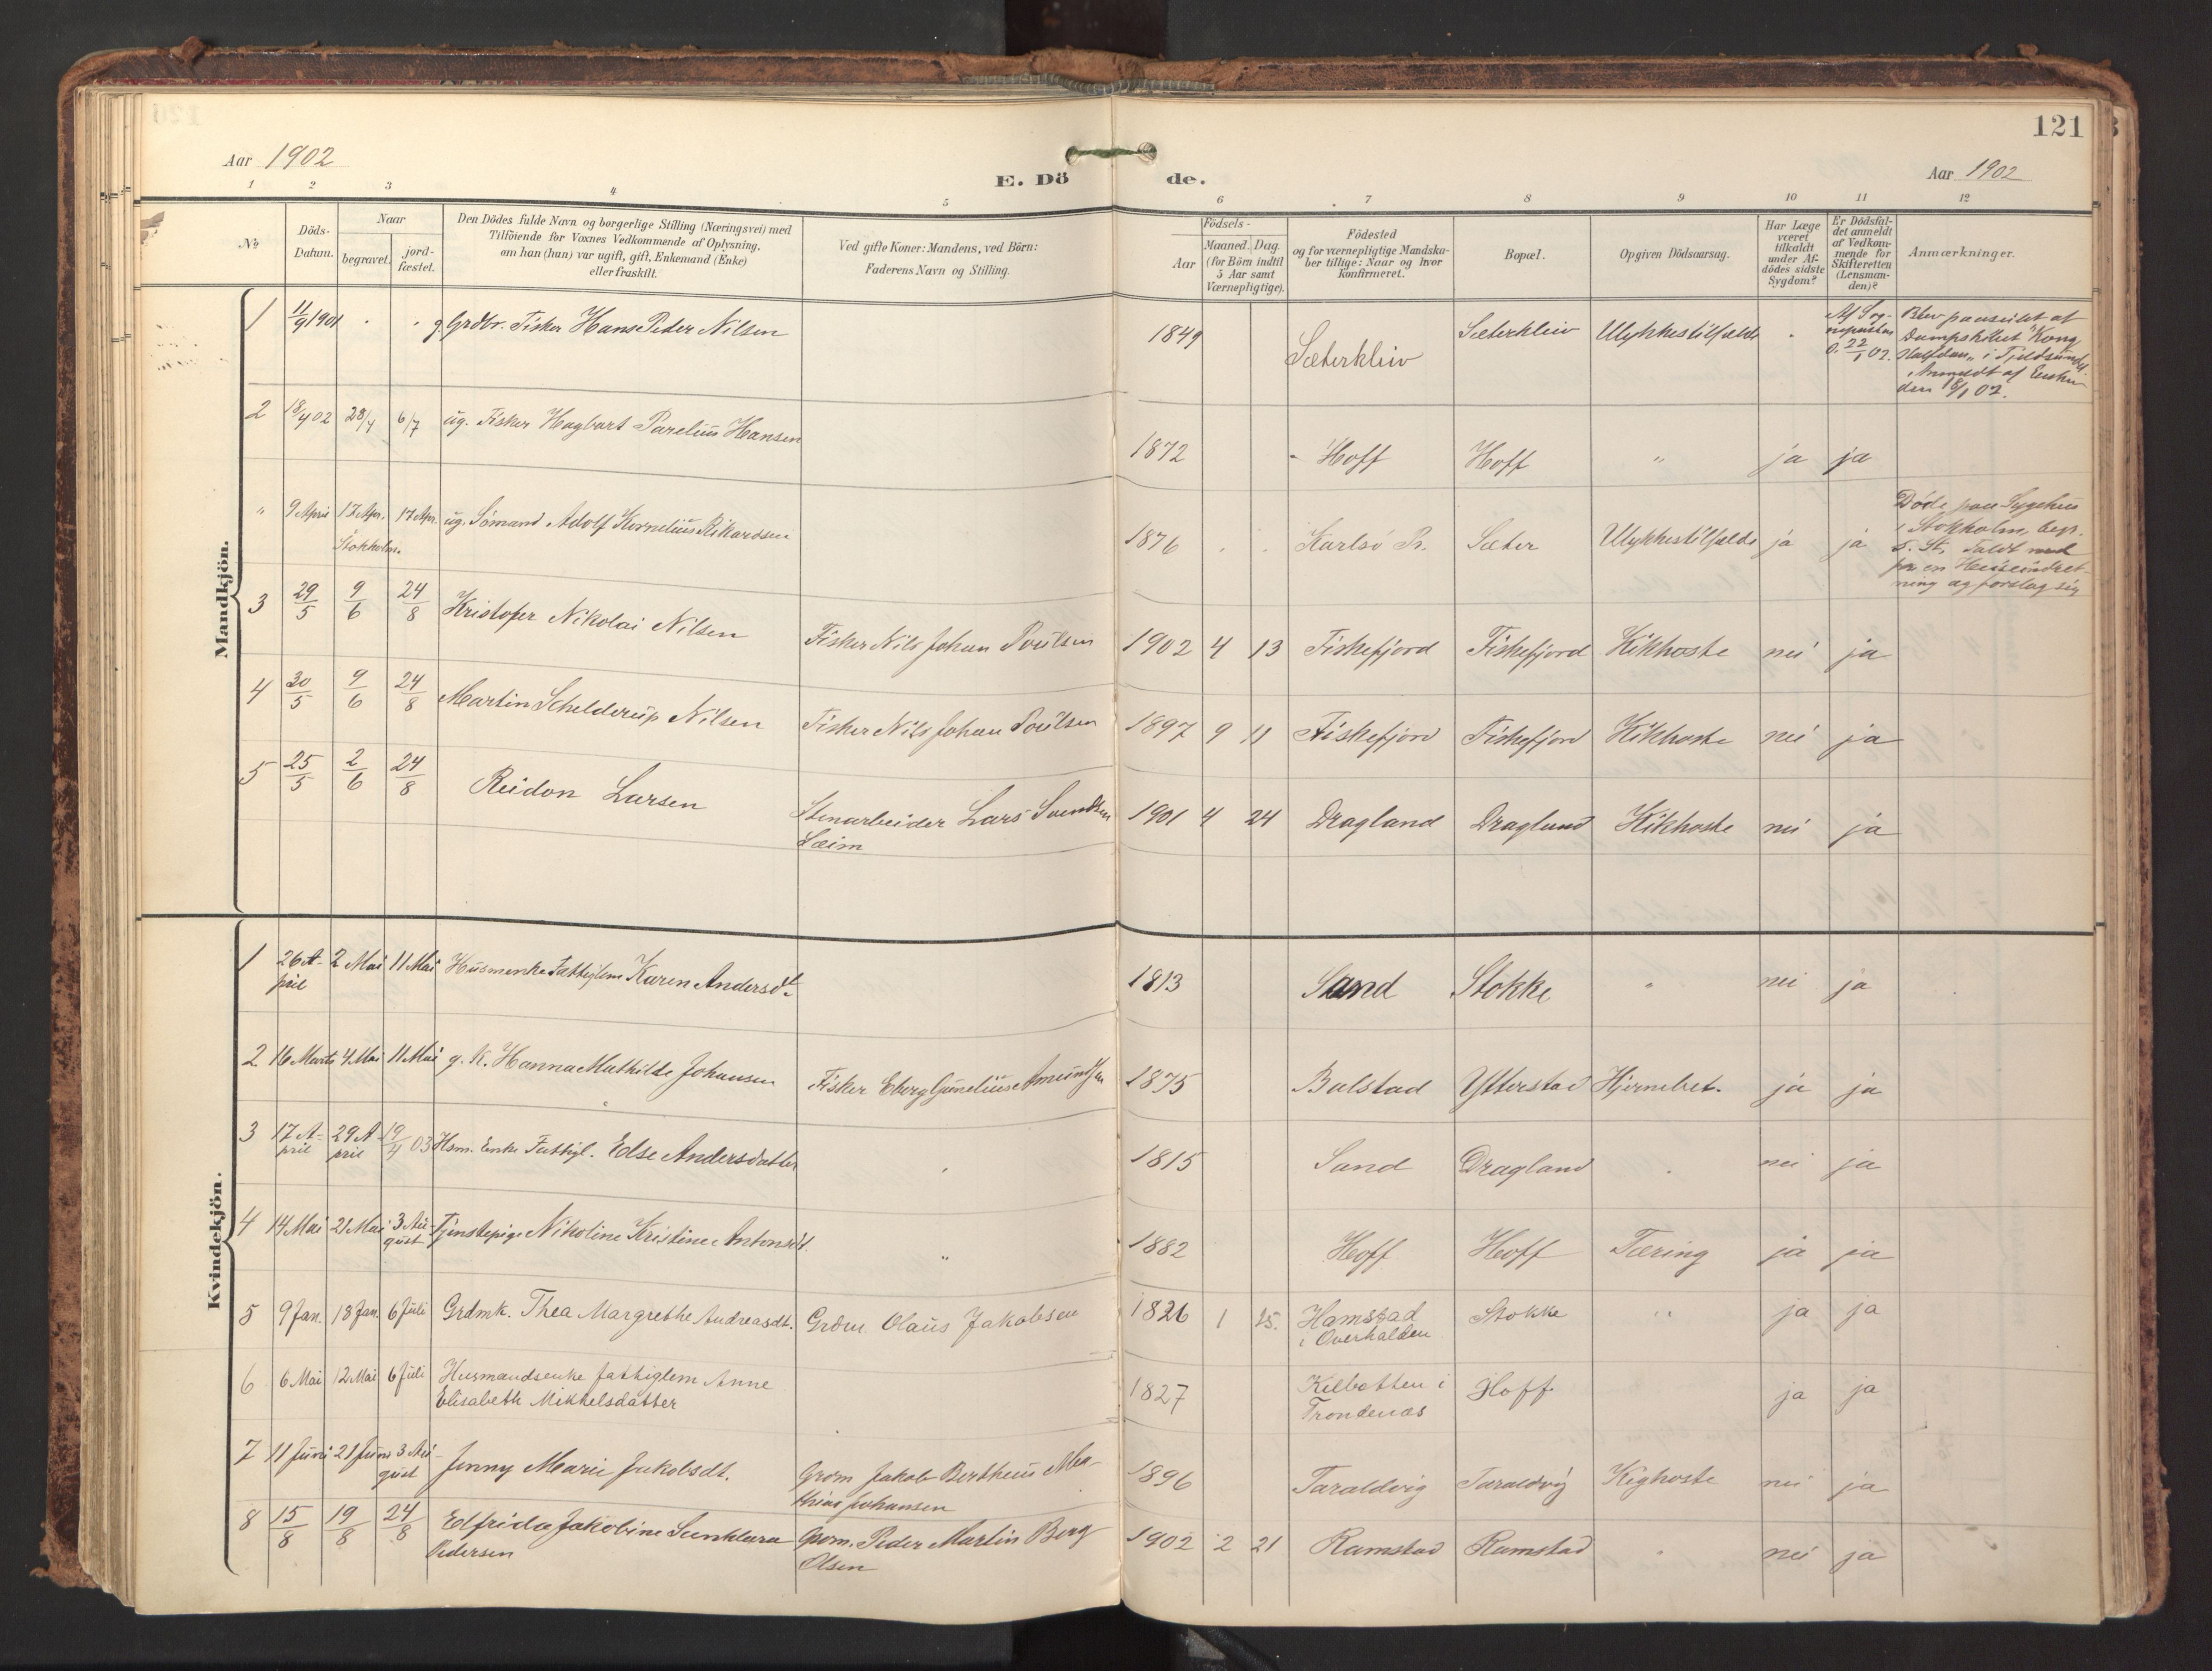 121
Aar 1902
E. Dö de.
Aar 1902
1 2 3 4 5 6 7 8 9 10 11 12
No
Döds-Datum.
Naar
begravet.
jord-fæstet.
Den Dödes fulde Navn og borgerlige Stilling (Næringsvei) med
Tilföiende for Voxnes Vedkommende af Oplysning,
om han (hun) var ugift, gift, Enkemand (Enke)
eller fraskilt.
Ved gifte Koner: Mandens, ved Börn:
Faderens Navn og Stilling.
Födsels-
Aar
Maaned. Dag.
(for Börn indtil
5 Aar samt
Værnepligtige).
Födested
og for værnepligtige Mandska-
ber tillige: Naar og hvor
Konfirmeret.
Bopæl.
Opgiven Dödsaarsag.
Har Læge
været
tilkaldt
under Af-
dödes sidste
Sygdom?
Er Dödsfal-
det anmeldt
af Vedkom-
mende for
Skifteretten
(Lensman-
den)?
Anmærkninger.
Mandkjön.
1 11/9 1901 g. Grdbr. Fisker Hans Peder Nilsen 1849 Sæterkleiv Sæterkleiv Ulykkestilfælde
22/1 02.
Blev paaseilet af
Dampskibet "Kong
Halfdan" i Tjeldsundet.
Anmeldt af Enken
den 18/1 02.
2 18/4 02 28/4 6/7 ug. Fisker Hagbart Parelius Hansen 1872 Hoff Hoff " ja ja
" 9 April 17 Apr. 17 Apr. ug. Sömand Adolf Kornelius Rikardsen 1876 Karlsö Pr. Sæter Ulykkestilfælde ja ja
Stokholm.
Döde paa Sygehus
i Stokholm, begr.
s. St. Faldt ned
fra en Heiseindret-
ning og forslog sig
3 29/5 9/6 24/8 Kristofer Nikolai Nilsen Fisker Nils Johan Poulsen 1902 4 13 Fiskefjord Fiskefjord Kikhoste nei ja
4 30/5 9/6 24/8 Martin Schelderup Nilsen Fisker Nils Johan Poulsen 1897 9 11 Fiskefjord Fiskefjord Kikhoste nei ja
5 25/5 2/6 24/8 Reidon Larsen Stenarbeider Lars Svendsen 1901 4 24 Dragland Dragland Kikhoste nei ja
Seim
Kvindekjön.
1 26 A- 2 Mai 11 Mai Husmenke Fattiglem Karen Andersdt. 1813 Sand Stokke " nei ja
pril
2 16 Marts 4 Mai 11 Mai g. K. Hanna Mathilde Johansen Fisker Eberg Gunelius Amundsen 1875 Balstad Ytterstad Hjernebet. ja ja
3 17 A- 29 A 19/4 03 Hsm. Enke Fattigl. Else Andersdatter 1815 Sand Dragland nei ja
pril pril
4 14 Mai 21 Mai 3 Au- Tjenstepige Nikoline Kristine Antonsdt. " 1882 Hoff Hoff Tæring ja ja
gust
5 9 Jan. 18 Jan. 6 Juli Grdmk. Thea Margrethe Andreasdt. Grdm. Olaus Jakobsen 1826 1 25. Hamstad Stokke " ja ja
i Overhalden
6 6 Mai 12 Mai 6 Juli Husmandsenke fattiglem Anne 1827 Kilbotten i Hoff ja ja
Elisabeth Mikkelsdatter Trondenæs
7 11 Juni 21 Juni 3 Au- Jenny Marie Jakobsdt. Grdm Jakob Bertheus Ma- 1896 Taraldvig Taraldvig Kighoste nei ja
gust thias Johansen
8 15/8 19/8 24/8 Elfrida Jakobine Sanklara Grdm. Peder Martin Berg 1902 2 21 Ramstad Ramstad " nei ja
Pedersen Olsen